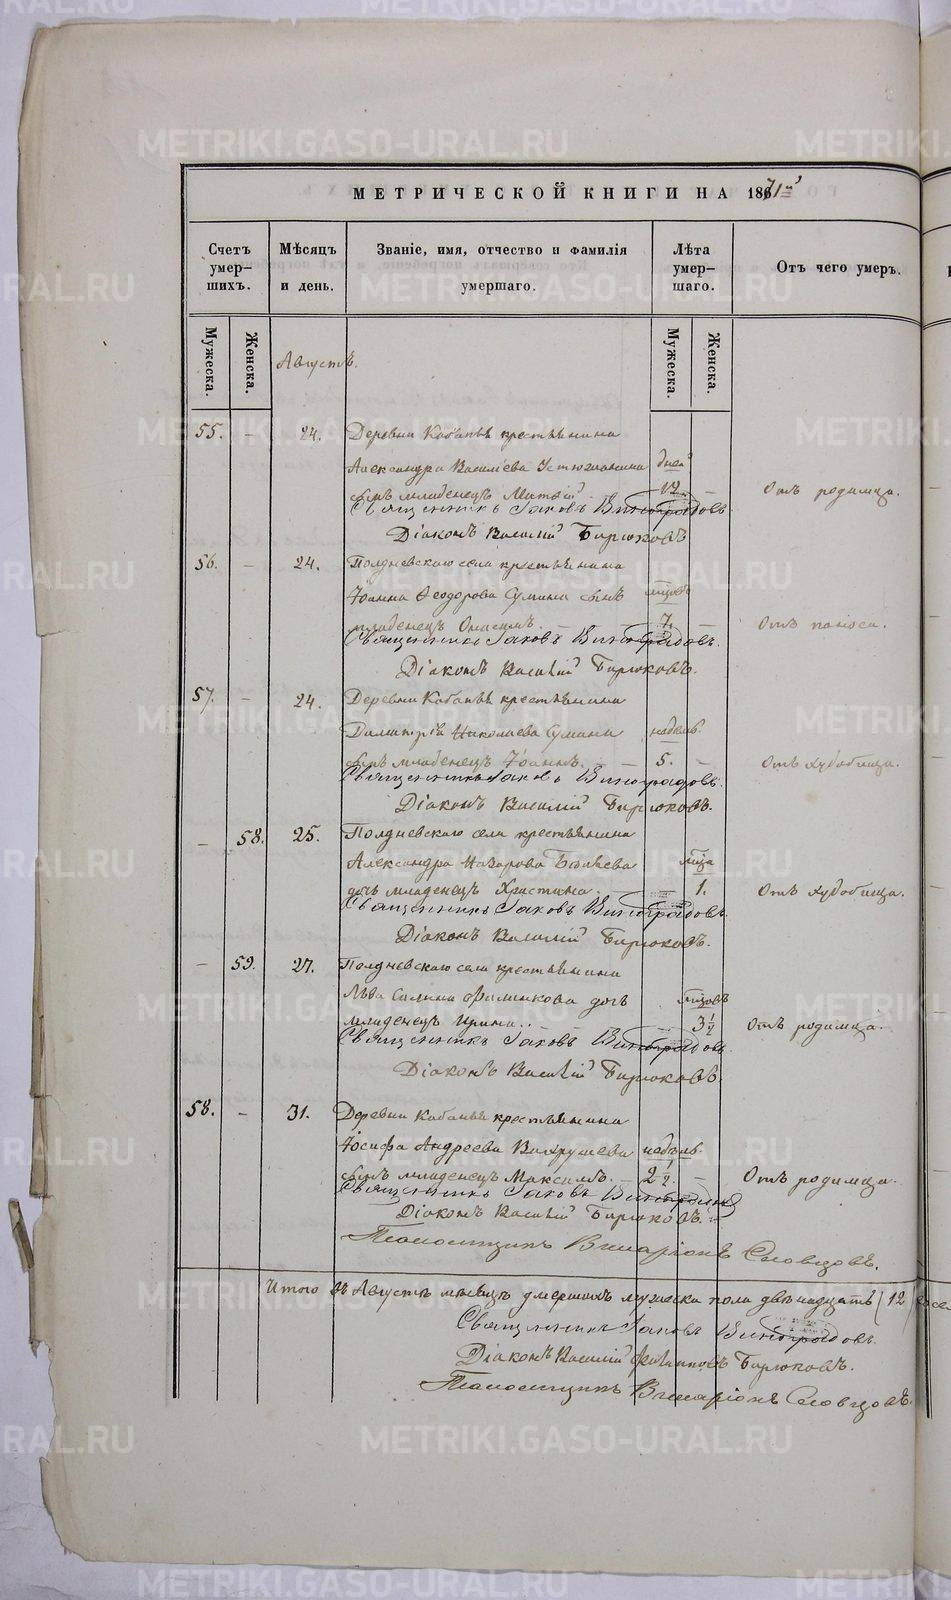 МЕТРИЧЕСКОЙ КНИГИ НА 1871й
Счетъ умер-шихъ.
Мѣсяцъ и день.
Званіе, имя, отчество и фамилія умершаго.
Лѣта умер-шаго.
Отъ чего умеръ.
Мужеска.
Женска.
Мужеска.
Женска.
Августъ.
55. - 24. Деревни Кабаньѣ крестьянина
Александра Васильева Устюжанина дней
сынъ младенецъ 12. - Отъ родимца.
Священникъ Іаковъ Виноградовъ
Діаконъ Василій Бирюковъ
56. - 24. Полдневскаго села крестьянина
Іоанна Ѳеодорова Сумина сынъ
младенецъ Онисимъ. - 7. - Отъ поноса.
Священникъ Іаковъ Виноградовъ.
Діаконъ Василій Бирюковъ.
57. - 24. Деревни Кабаньѣ крестьянина
Димитрія Николаева Сумина недѣль.
сынъ младенецъ Іоаннъ. - 5. - Отъ худобища.
Священникъ Іаковъ Виноградовъ.
Діаконъ Василій Бирюковъ.
- 58. 25. Полдневскаго села крестьянина
Александра Назарова Бѣляева мца
дочь младенецъ Христина. 1. Отъ худобища.
Священникъ Іаковъ Виноградовъ.
Діаконъ Василій Бирюковъ.
- 59. 27. Полдневскаго села крестьянина
Льва Силина Филинкова дочь
младенецъ Ирина. 3 1/2 Отъ родимца.
Священникъ Іаковъ Виноградовъ
Діаконъ Василій Бирюковъ
58. - 31. Деревни Кабаньѣ крестьянина
Іосифа Андреева Вахрушева недѣль
сынъ младенецъ Максимъ. - 2 1/2. - Отъ родимца.
Священникъ Іаковъ Виноградовъ
Діаконъ Василій Бирюковъ.
Псаломщикъ Виларіонъ Словцовъ.
Итого въ Августѣ мѣсяцѣ умершихъ мужеска пола двѣнадцать (12)
Священникъ Іаковъ Виноградовъ.
Діаконъ Василій Бирюковъ.
Псаломщикъ Виларіонъ Словцовъ.
METRIKI.GASO-URAL.RU